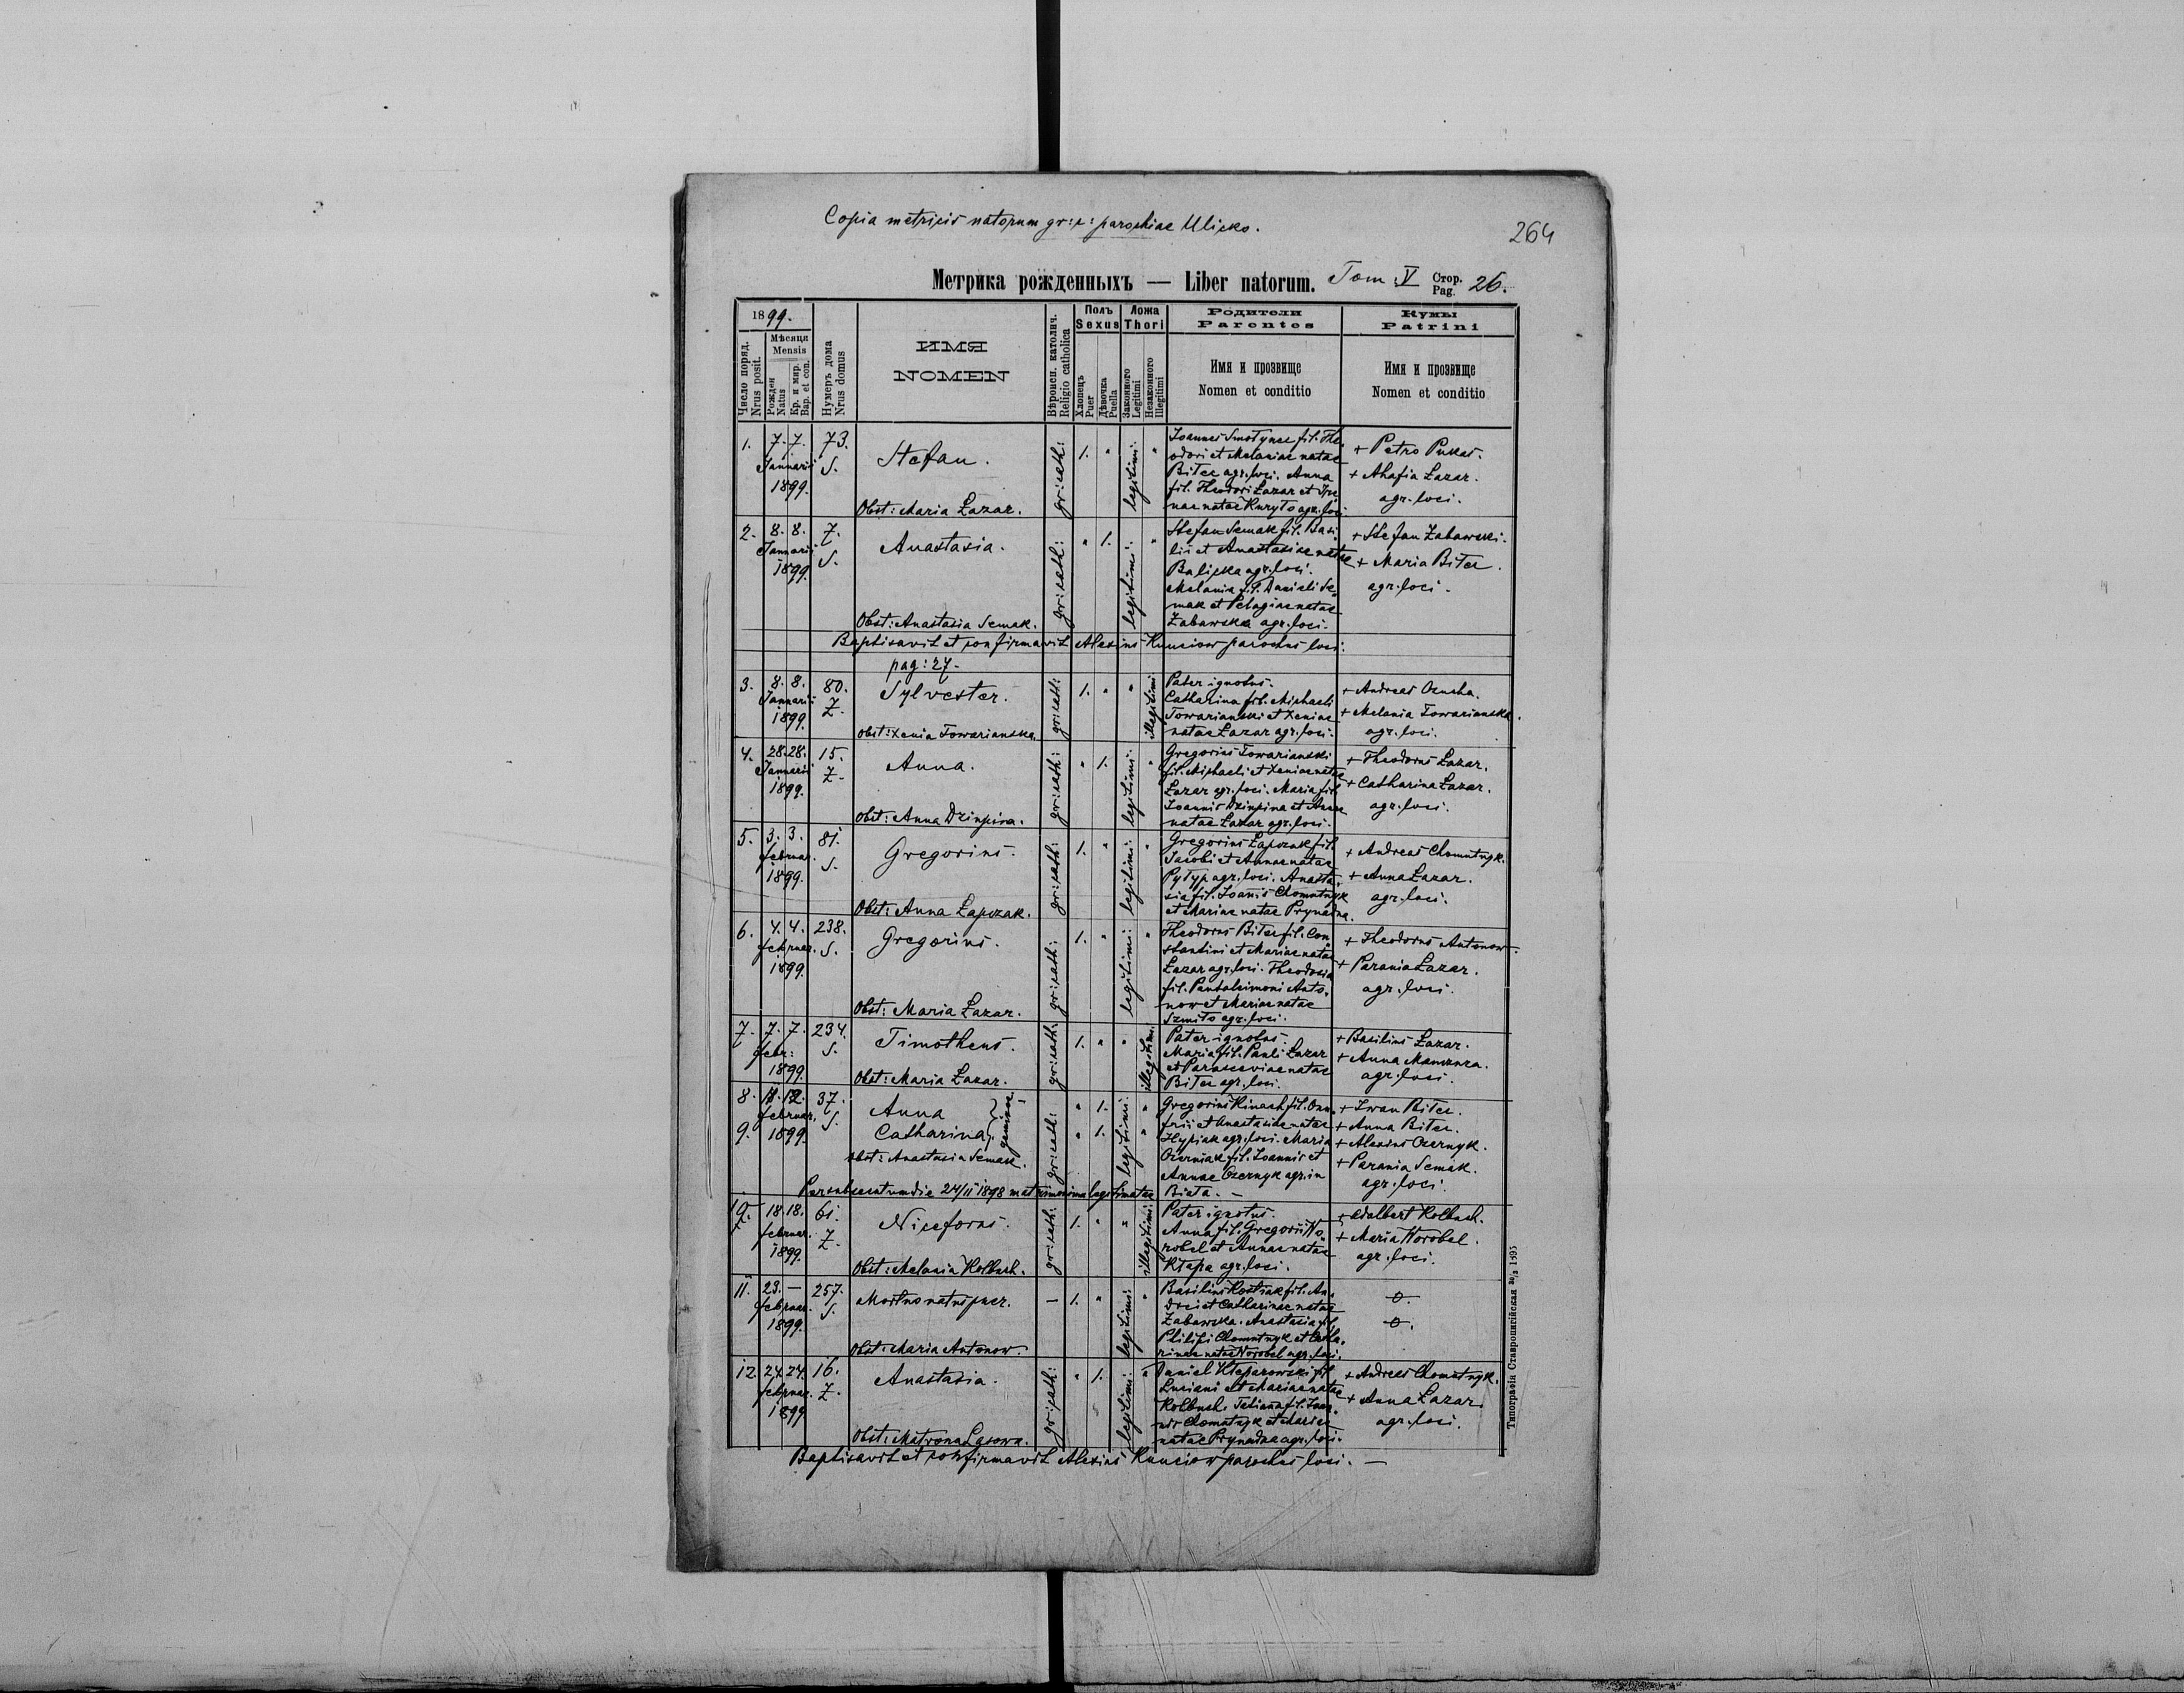 Copia metricis natorum gr: c: parochiae Ulicko.
264
Метрика рожденныхъ — Liber natorum. Tom. V Стор. Pag. 26.
1899.
Число поряд. Nrus posit.
Мѣсяця Mensis
Рожден Natus
Кр. и мир. Bap. et con.
Нумеръ дома Nrus domus
ИМЯ
NOMEN
Вѣроисп. католич. Religio catholica
Полъ
Sexus
Хлопець Puer
Дѣвочка Puella
Ложа
Thori
Законного Legitimi
Незаконного Illegitimi
Родители
Parentes
Имя и прозвище
Nomen et conditio
Кумы
Patrini
Имя и прозвище
Nomen et conditio
1. 7. 7. Januarii 1899. 73. S.
Stefan.
Obst: Maria Łazar.
gr: cath: 1. " legitimi: "
Joannes Smotynec fil. The-
odori et Melaniae natae
Biłec agr. loci. Anna
fil. Theodori Łazar et Ire-
nae natae Kuryło agr. loci.
+ Petro Pukas.
+ Ahafia Łazar.
agr. loci.
2. 8. 8. Januarii 1899. 7. S.
Anastasia.
Obst: Anastasia Semak.
gr: cath: " 1. legitimi: "
Stefan Semak fil. Basi-
lii et Anastasiae natae
Balicka agr. loci.
Melania fil. Danieli Se-
mak et Pelagiae natae
Zabawska agr. loci.
+ Stefan Zabawski.
+ Maria Biłec.
agr. loci.
Baptisavit et confirmavit Alexius Kunciow parochus loci.
pag: 27.
3. 8. 8. Januarii 1899. 80. Z.
Sylvester.
Obst: Xenia Towarianska.
gr: cath: 1. " " illegitimi
Pater ignotus.
Catharina fil. Michaeli
Towarianski et Xeniae
natae Łazar agr. loci.
+ Andreas
+ Melania Towarianska.
agr. loci.
4. 28. 28. Januarii 1899. 15. Z.
Anna.
Obst: Anna Dzinpina.
gr: cath: " 1. legitimi: "
Gregorius Towarianski
fil. Michaeli et Xeniae natae
Łazar agr. loci. Maria fil.
Joannis Dzinpina et Annae
natae Łazar agr. loci.
+ Theodorus Łazar.
+ Catharina Łazar.
agr. loci.
5. 3. 3. februar. 1899. 81. S.
Gregorius.
Obst: Anna Łapczak.
gr: cath: 1. " legitimi: "
Gregorius Łapczak fil.
Jacobi et Annae natae
Pyłyp agr. loci. Anasta-
sia fil. Joanis Chomutnyk
et Mariae natae Prynadna.
+ Andreas Chomutnyk.
+ Anna Łazar.
agr. loci.
6. 4. 4. februar. 1899. 238. S.
Gregorius.
Obst: Maria Łazar.
gr: cath: 1. " legitimi: "
Theodorus Biłec fil. Con-
stantini et Mariae natae
Łazar agr. loci. Theodosia
fil. Pantaleimoni Anto-
now et Mariae natae
Szmiło agr. loci.
+ Theodorus Antonow.
+ Parania Łazar.
agr. loci.
7. 7. 7. febr: 1899. 234. S.
Timotheus.
Obst: Maria Łazar.
gr: cath: 1. " " illegitimi.
Pater ignotus.
Maria fil. Pauli Łazar
et Parasceviae natae
Biłec agr. loci.
+ Basilius Łazar.
+ Anna
agr. loci.
8. 11. 12. februar. 1899. 37. S.
9.
Anna
Catharina } geminae.
Obst: Anastasia Semak.
gr: cath: " 1. legitimi: "
" 1. "
Gregorius Kinach fil. Onu-
frii et Anastasiae natae
agr. loci. Maria
Ozerniak fil. Joannis et
Annae Ozernyk agr. in
Biała. —
+ Iwan Biłec.
+ Anna Biłec.
+ Alexius Ozernyk.
+ Parania Semak.
agr. loci.
Per subsecutum die 24/II 1898 matrimonium legitimatae
10. 18. 18. februar. 1899. 61. Z.
Niceforus.
Obst: Melania Kolbuch.
gr: cath: 1. " " illegitimi:
Pater ignotus.
Anna fil. Gregorii Wo-
robel et Annae natae
Kłapa agr. loci.
+ Adalbert Kolbuch.
+ Maria Worobel.
agr. loci.
11. 23. — februar. 1899. 257. S.
Mortuo natus puer.
Obst: Maria Antonow.
— 1. " legitimi: "
Basilius Kostiak fil. An-
drei et Catharinae natae
Zabawska. Anastasia fil.
Philipi Chomutnyk et Catha-
rinae natae Worobel agr. loci.
12. 24. 24. februar. 1899 16. Z.
Anastasia.
Obst: Matrona Łasowa.
gr: cath: " 1. legitimi: "
Daniel Kłeparowski fil.
Luciani et Mariae natae
Kolbuch. Tatiana fil. Joan-
nis Chomutnyk et Mariae
natae Prynadna agr. loci.
+ Andreas Chomutnyk.
+ Anna Łazar.
agr. loci.
Baptisavit et confirmavit Alexius Kunciow parochus loci. —
Типографія Ставропигійская